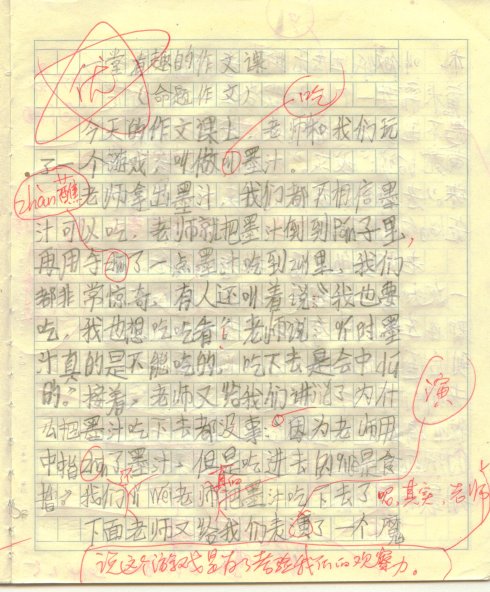 一堂有趣的作文课
优
（命题作文）
吃
今天的作文课上，老师和我们玩
了一个游戏，叫做 墨汁。
zhàn 蘸
老师拿出墨汁，我们都不相信墨
汁可以吃，老师就把墨汁倒到 子里，
再用手 了一点墨汁吃到 里，我们
都非常惊奇，有人还叫着说：“我也要
吃，我也想吃吃看”老师说：“平时墨
汁真的是不能吃的，吃下去是会中
的。”接着，老师又给我们讲 了为什
么把墨汁吃下去都没事：“因为老师用
中指 了墨汁，但是吃进去的 是食
指”我们 wéi老师把墨汁吃下去了 呢，其实，老师
演
下面老师又给我们表 了一个魔
说这个游戏是为了考验我们的观察力。